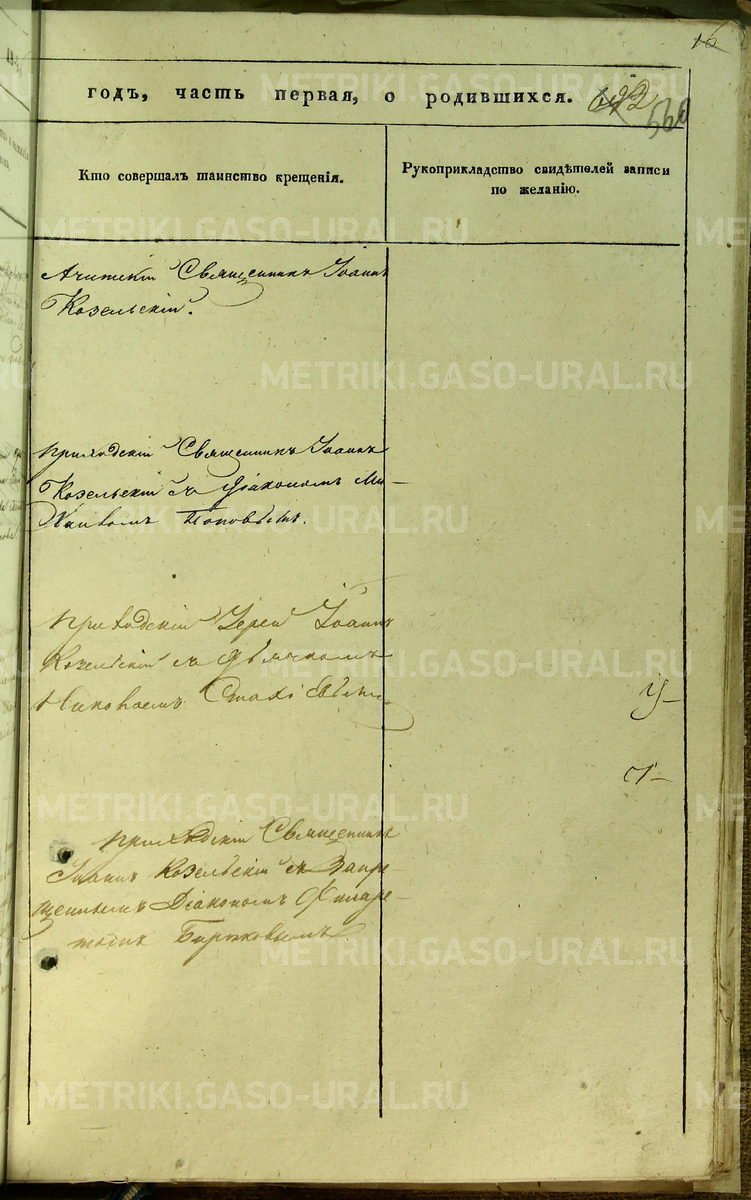 16
годъ, часть первая, о родившихся.
560
Кто совершалъ таинство крещенія.
Рукоприкладство свидѣтелей записи
по желанію.
Ачитскій Священникъ Іоаннъ
Козельскій.
приходскій Священникъ Іоаннъ
Козельскій съ Діакономъ Ми-
хаиломъ Поповымъ.
приходскій Іерей Іоаннъ
Козельскій съ дьячкомъ
Николаемъ
У-
приходскій Священникъ
Іоаннъ Козельскій съ Запре-
щеннымъ Діакономъ Филаре-
томъ
METRIKI.GASO-URAL.RU